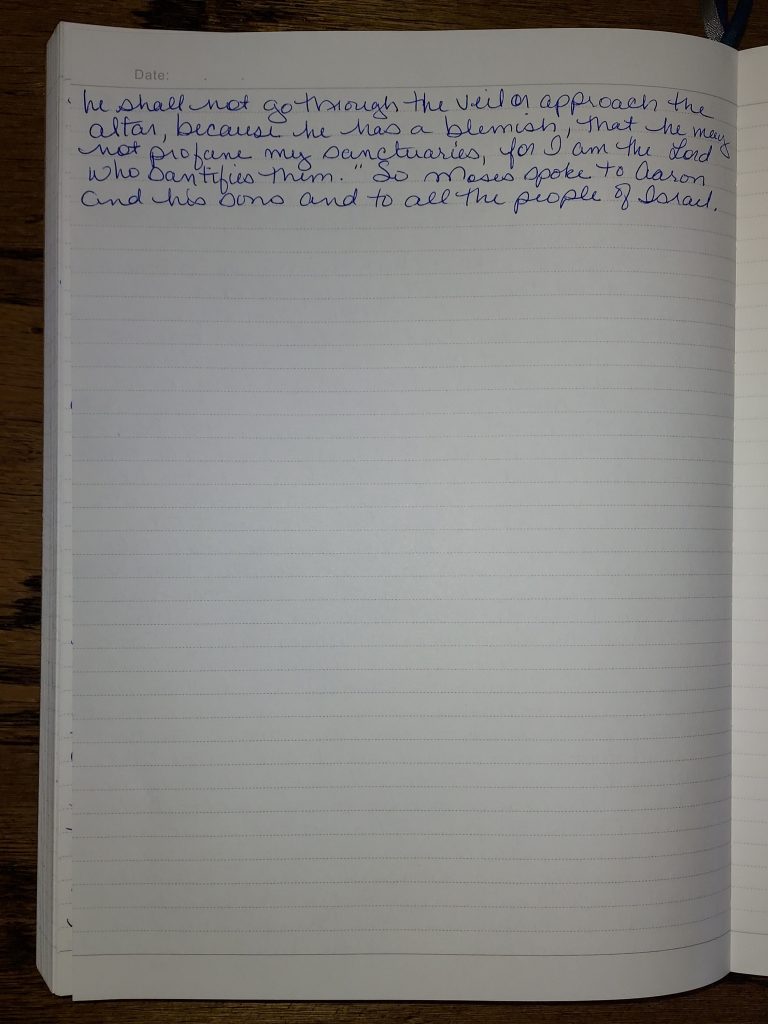 Date:
he shall not go through the veil or approach the
altar, because he has a blemish, that he may
not profane my sanctuaries, for I am the Lord
who santifies them." So Moses spoke to Aaron
and his sons and to all the people of Israel.